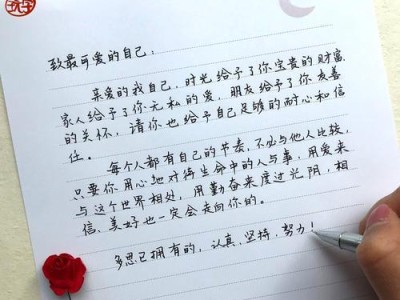 致最可爱的自己：
亲爱的我自己，时光给予了你宝贵的财富
家人给予了你无私的爱，朋友给予了你友善
的关怀，请你也给予自己足够的耐心和信
任。
每个人都有自己的节奏，不必与他人比较，
只要你用心地对待生命中的人与事，用爱来
与这个世界相处，用勤奋来度过光阴，相
信，美好也一定会走向你的。
多思已拥有的，认真，坚持，努力！